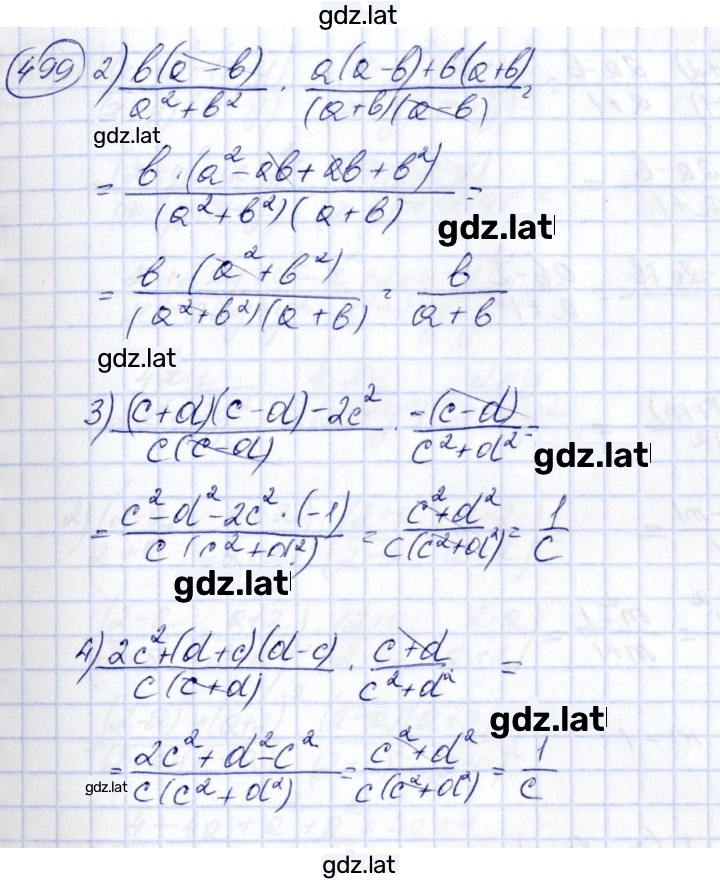 gdz.lat
499 2) b(a-b)/(a²+b²) · (a(a-b)+b(a+b))/((a+b)(a-b)) =
gdz.lat
= b·(a²-ab+ab+b²)/((a²+b²)(a+b)) =
gdz.lat
= b·(a²+b²)/((a²+b²)(a+b)) = b/(a+b)
gdz.lat
3) ((c+d)(c-d)-2c²)/(c(c-d)) · -(c-d)/(c²+d²) =
gdz.lat
= (c²-d²-2c²·(-1))/(c(c²+d²)) = (c²+d²)/(c(c²+d²)) = 1/c
gdz.lat
4) (2c²+(d+c)(d-c))/(c(c+d)) · (c+d)/(c²+d²) =
gdz.lat
= (2c²+d²-c²)/(c(c²+d²)) = (c²+d²)/(c(c²+d²)) = 1/c
gdz.lat
gdz.lat